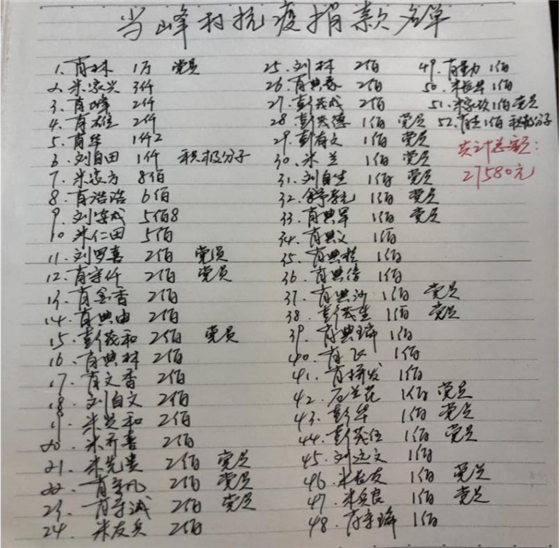 当峰村抗疫捐款名单
1、肖林 1万 党员
2、米家兴 3仟
3、肖峰 2仟
4、肖雄 2仟
5、肖军 1仟2
6、刘自田 1仟 积极分子
7、米家方 8佰
8、肖浩浩 6佰
9、刘安成 5佰8
10、米仁田 5佰
11、刘罗喜 2佰 党员
12、肖宇仟 2佰 党员
13、肖金香 2佰
14、肖典由 2佰
15、彭茂和 2佰 党员
16、肖典材 2佰
17、肖文香 2佰
18、刘自文 2佰
19、米先和 2佰
20、米开喜 2佰
21、米先贵 2佰 党员
22、肖宇凡 2佰 党员
23、肖宇诚 2佰 党员
24、米友兵 2佰
25、刘林 2佰
26、肖典春 2佰
27、彭茂成 2佰
28、彭茂德 1佰 党员
29、彭有文 1佰 党员
30、米兰 1佰 党员
31、刘自生 1佰 党员
32、1佰 党员
33、肖典军 1佰 党员
34、肖典义 1佰
35、肖典程 1佰
36、肖典信 1佰
37、肖典沙 1佰 党员
38、彭茂奎 1佰 党员
39、肖典瑞 1佰
40、肖飞 1佰
41、肖拥发 1佰
42、石兰花 1佰 党员
43、彭华 1佰 党员
44、彭茂位 1佰 党员
45、刘远文 1佰
46、米长友 1佰 党员
47、米兵良 1佰 党员
48、肖宇瑞 1佰
49、肖勇力 1佰
50、米长军 1佰
51、米家政 1佰 党员
52、肖 1佰 积极分子
共计总额：
21580元